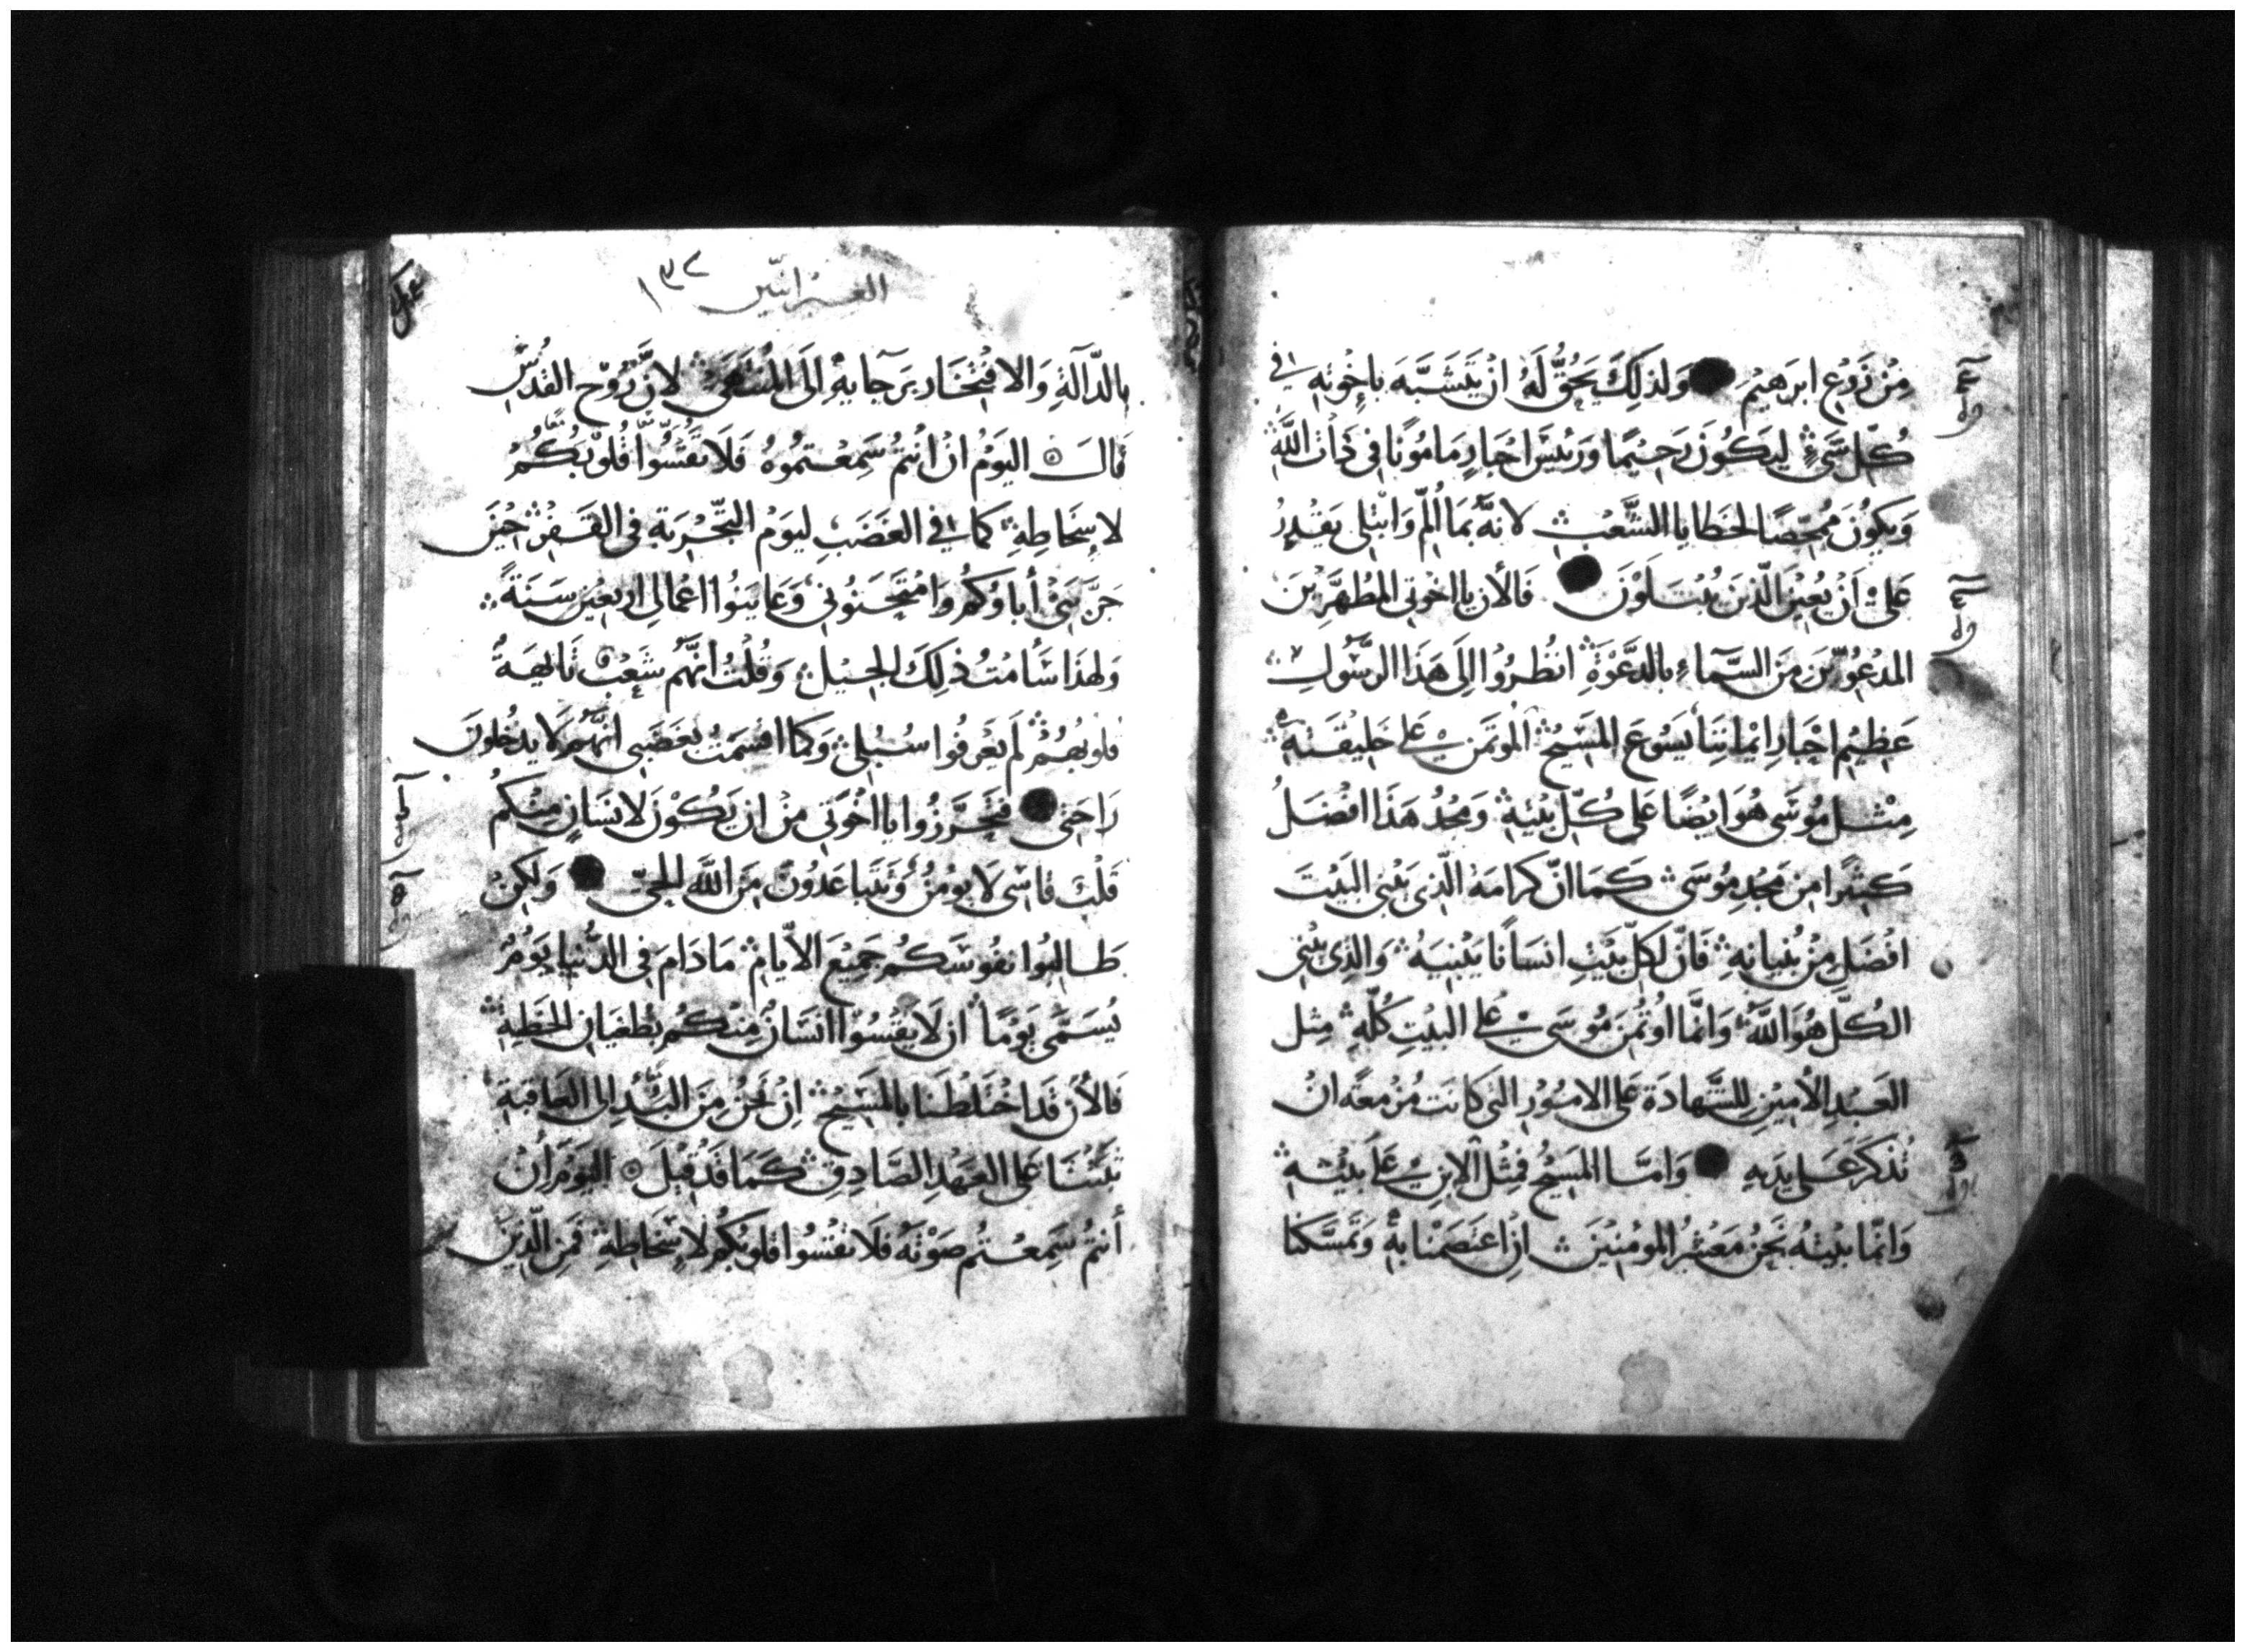 مِنْ زَرْعِ ابرَهِيْمَ وَلذلِكَ يَحِقُّ لَهُ انْ يَتَشَبَّهَ بإخْوَتِهِ في
كُلّ شَيْءٍ ليَكُونَ رَحِيْمًا وَرَئيسَ احْبَارٍ مَامُونًا في ذَاتِ اللَّهِ
وَيكُونَ مُمَحِّصًا لخطايا الشَّعْبِ لانهُ بمَا أُلِمّ وَابْتلى يَقْدِرُ
عَلىْ اَنْ يُعِيْنَ الّذينَ يُبْتَلَوْنَ فَالأن يا اخْوَتي المطَهَّرِيْنَ
المدْعُوِّيْنَ مِنَ السَّمآءِ بالدَّعْوَةِ انظُرُوْا الىَ هَذَا الرسُولِ
عَظِيْم احْبَارِ ايْمَانِنَا يَسُوعَ المسِيْحِ المؤتَمَن على خَلِيْقَتِهِ
مِثْل مُوسَى هُوَ ايْضًا عَلى كُلّ بَيْتِهِ وَمَجْدُ هَذَا افْضَلُ
كَثِيْرًا مِن مَجْدِ مُوسَى كَمَا انّ كرامَة الّذِي يَبْني البَيْتَ
افْضَل مِنْ بُنيانِهِ فَانّ لكلّ بَيْتٍ انسَانًا يَبْنِيهِ وَالذِي بَنى
الكُلَّ هُوَ اللَّهُ وَانَّمَا اوْتُمِنَ مُوسَى على البَيْتِ كُلّهِ مِثل
العَبْدِ الأمِيْنِ للشَّهادَة عَلى الامُوْرِ التي كانت مُزْمعَة انْ
تُذكَرَ عَلى يدَيهِ وَامّا المسِيْحُ فمِثْل الابن عَلَى بَيْتِهِ
وَانّما بَيْتهُ نَحْنُ مَعْشَرُ المومِنِيْنَ انِ اعْتَصَمْنا بهِ وَتمَسَّكنا
العبرانيّين ١٣٢
بالدَّآلةِ وَالافْتِخَارِ برَجآيهِ الَى المُنتَهَى لانَّ رُوْحَ القدُسِ
قَالَ اليَوْمُ انْ انْتُمْ سَمِعْتمُوهُ فَلَا تقَسُّوْا قُلُوْبَكُمْ
لاسْخَاطِهِ كما في الغَضَبِ ليَوم التّجْرِبَةِ في القَفْرِ حِيْنَ
جَرَّبَني أباؤكُمْ وَامْتَحَنُوني وَعَايَنُوا اعْمالي اربَعِيْن سَنَةً
وَلهذَا سَأمْتُ ذلِكَ الجِيْلَ وَقُلْتُ انَّهُم شَعْبٌ تَايهَةٌ
قلوبُهُمْ لَم يَعْرفُوا سُبُلي وَكما اقسَمْتُ بغَضَبي انّهُم لا يدخُلونَ
رَاحَتي فتَحَرَّزُوا يا اخْوَتي مِنْ ان يَكُوْن لانسَانٍ مِنْكم
قَلْبٌ قاسي لا يومِنُ وَتتَباعَدُونَ مِنَ اللَّهِ الحيّ وَلكِنْ
طَالِبُوا نفُوسَكُم جَمِيْعَ الأيّامِ مَا دَامَ في الدُّنْيا يَوْمٌ
يُسَمَّى يَوْمًا ان لَا يَقْسُوْا انْسَانٌ مِنْكُم بطغيَانِ الخَطِيّةِ
فَالأنَ قَد اخْتَلَطْنَا بالمَسِيْحِ انْ نَحْنُ مِنَ البَدْءِ الى العَاقبَةِ
ثَبَتْنَا عَلى العَهْدِ الصَّادِقِ كَمَا قَدْ قِيْلَ اليَوْمَ انْ
أنتمْ سَمِعْتُم صَوْتَهُ فَلَا تقَسُّوا قلوبَكُم لاسْخَاطِهِ فَمَنِ الّذِينَ